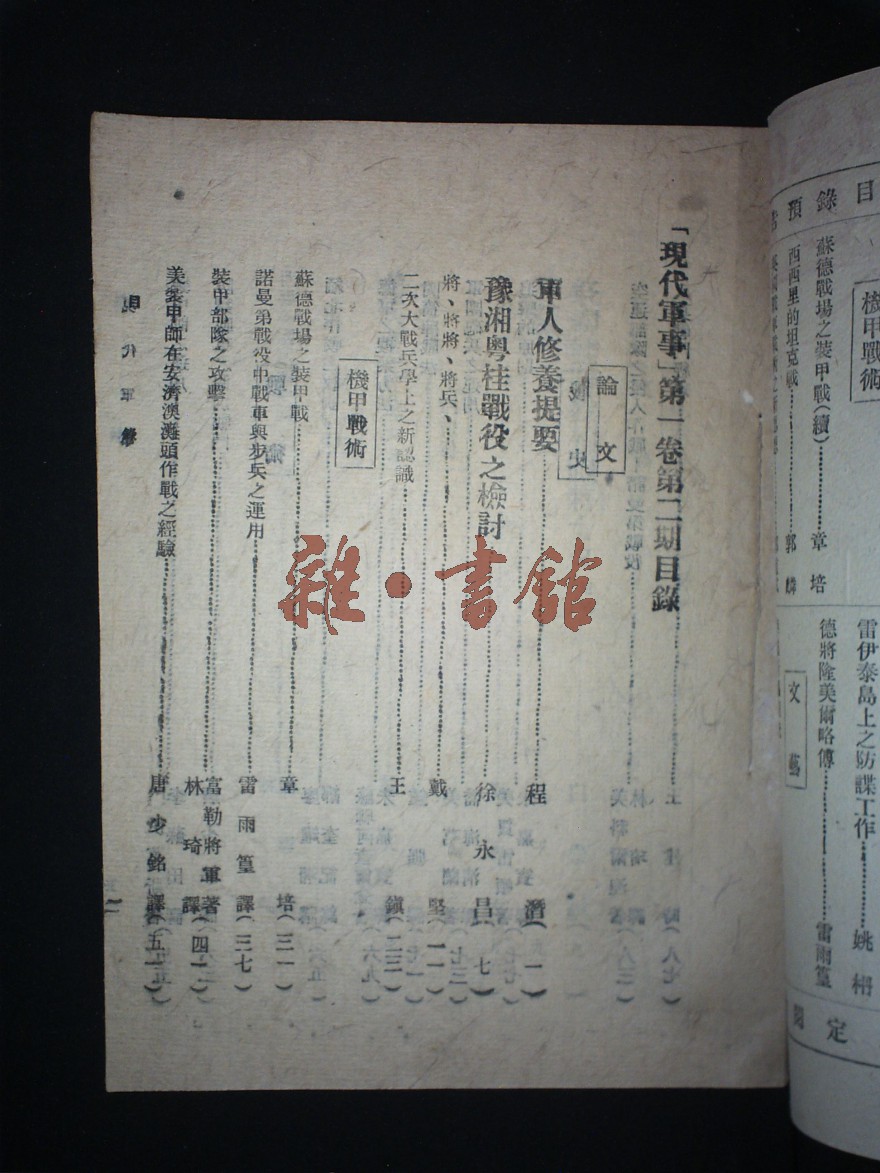 目錄預告
機甲戰術
蘇德戰場之裝甲戰(續)⋯⋯章培
西西里的坦克戰⋯⋯郭麟
雷伊泰島上之防諜工作⋯⋯姚枬
德將隆美爾略傳⋯⋯雷雨篁
文藝
「現代軍事」第一卷第二期目錄
論文
軍人修養提要⋯⋯程潛(一)
豫湘粵桂戰役之檢討⋯⋯徐永昌(七)
將、將將、將兵、⋯⋯戴堅(一一)
二次大戰兵學上之新認識⋯⋯王鎮(二三)
機甲戰術
蘇德戰場之裝甲戰⋯⋯章培(三一)
諾曼第戰役中戰車與步兵之運用⋯⋯雷雨篁譯(三七)
裝甲部隊之攻擊⋯⋯富勒將軍著 林琦譯(四一)
美裝甲師在安濟澳灘頭作戰之經驗⋯⋯唐少銘譯(五一)
現代軍事
雜·書館